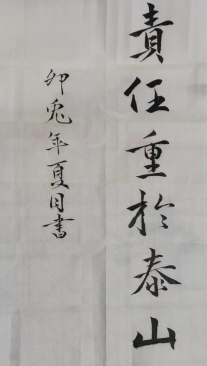 責任重於泰山
卯兔年夏月書